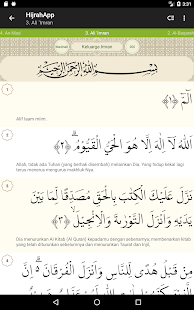 5:31
HijrahApp
3. Ali 'Imran
3. Ali 'Imran
Keluarga Imran
بِسْمِ اللّٰهِ الرَّحْمٰنِ الرَّحِيْمِ
1
الٓمّٓ ﴿١﴾
Alif laam miim.
2
اللّٰهُ لَآ اِلٰهَ اِلَّا هُوَ الْحَيُّ الْقَيُّوْمُ ﴿٢﴾
Allah, tidak ada Tuhan (yang berhak disembah) melainkan Dia. Yang hidup kekal lagi
terus menerus mengurus makhluk-Nya.
3
نَزَّلَ عَلَيْكَ الْكِتٰبَ بِالْحَقِّ مُصَدِّقًا لِّمَا بَيْنَ
يَدَيْهِ وَاَنْزَلَ التَّوْرٰىةَ وَالْاِنْجِيْلَ ﴿٣﴾
Dia menurunkan Al Kitab (Al Quran) kepadamu dengan sebenarnya; membenarkan kitab
yang telah diturunkan sebelumnya dan menurunkan Taurat dan Injil,
4
مِنْ قَبْلُ هُدًى لِّلنَّاسِ وَاَنْزَلَ الْفُرْقَانَ اِنَّ